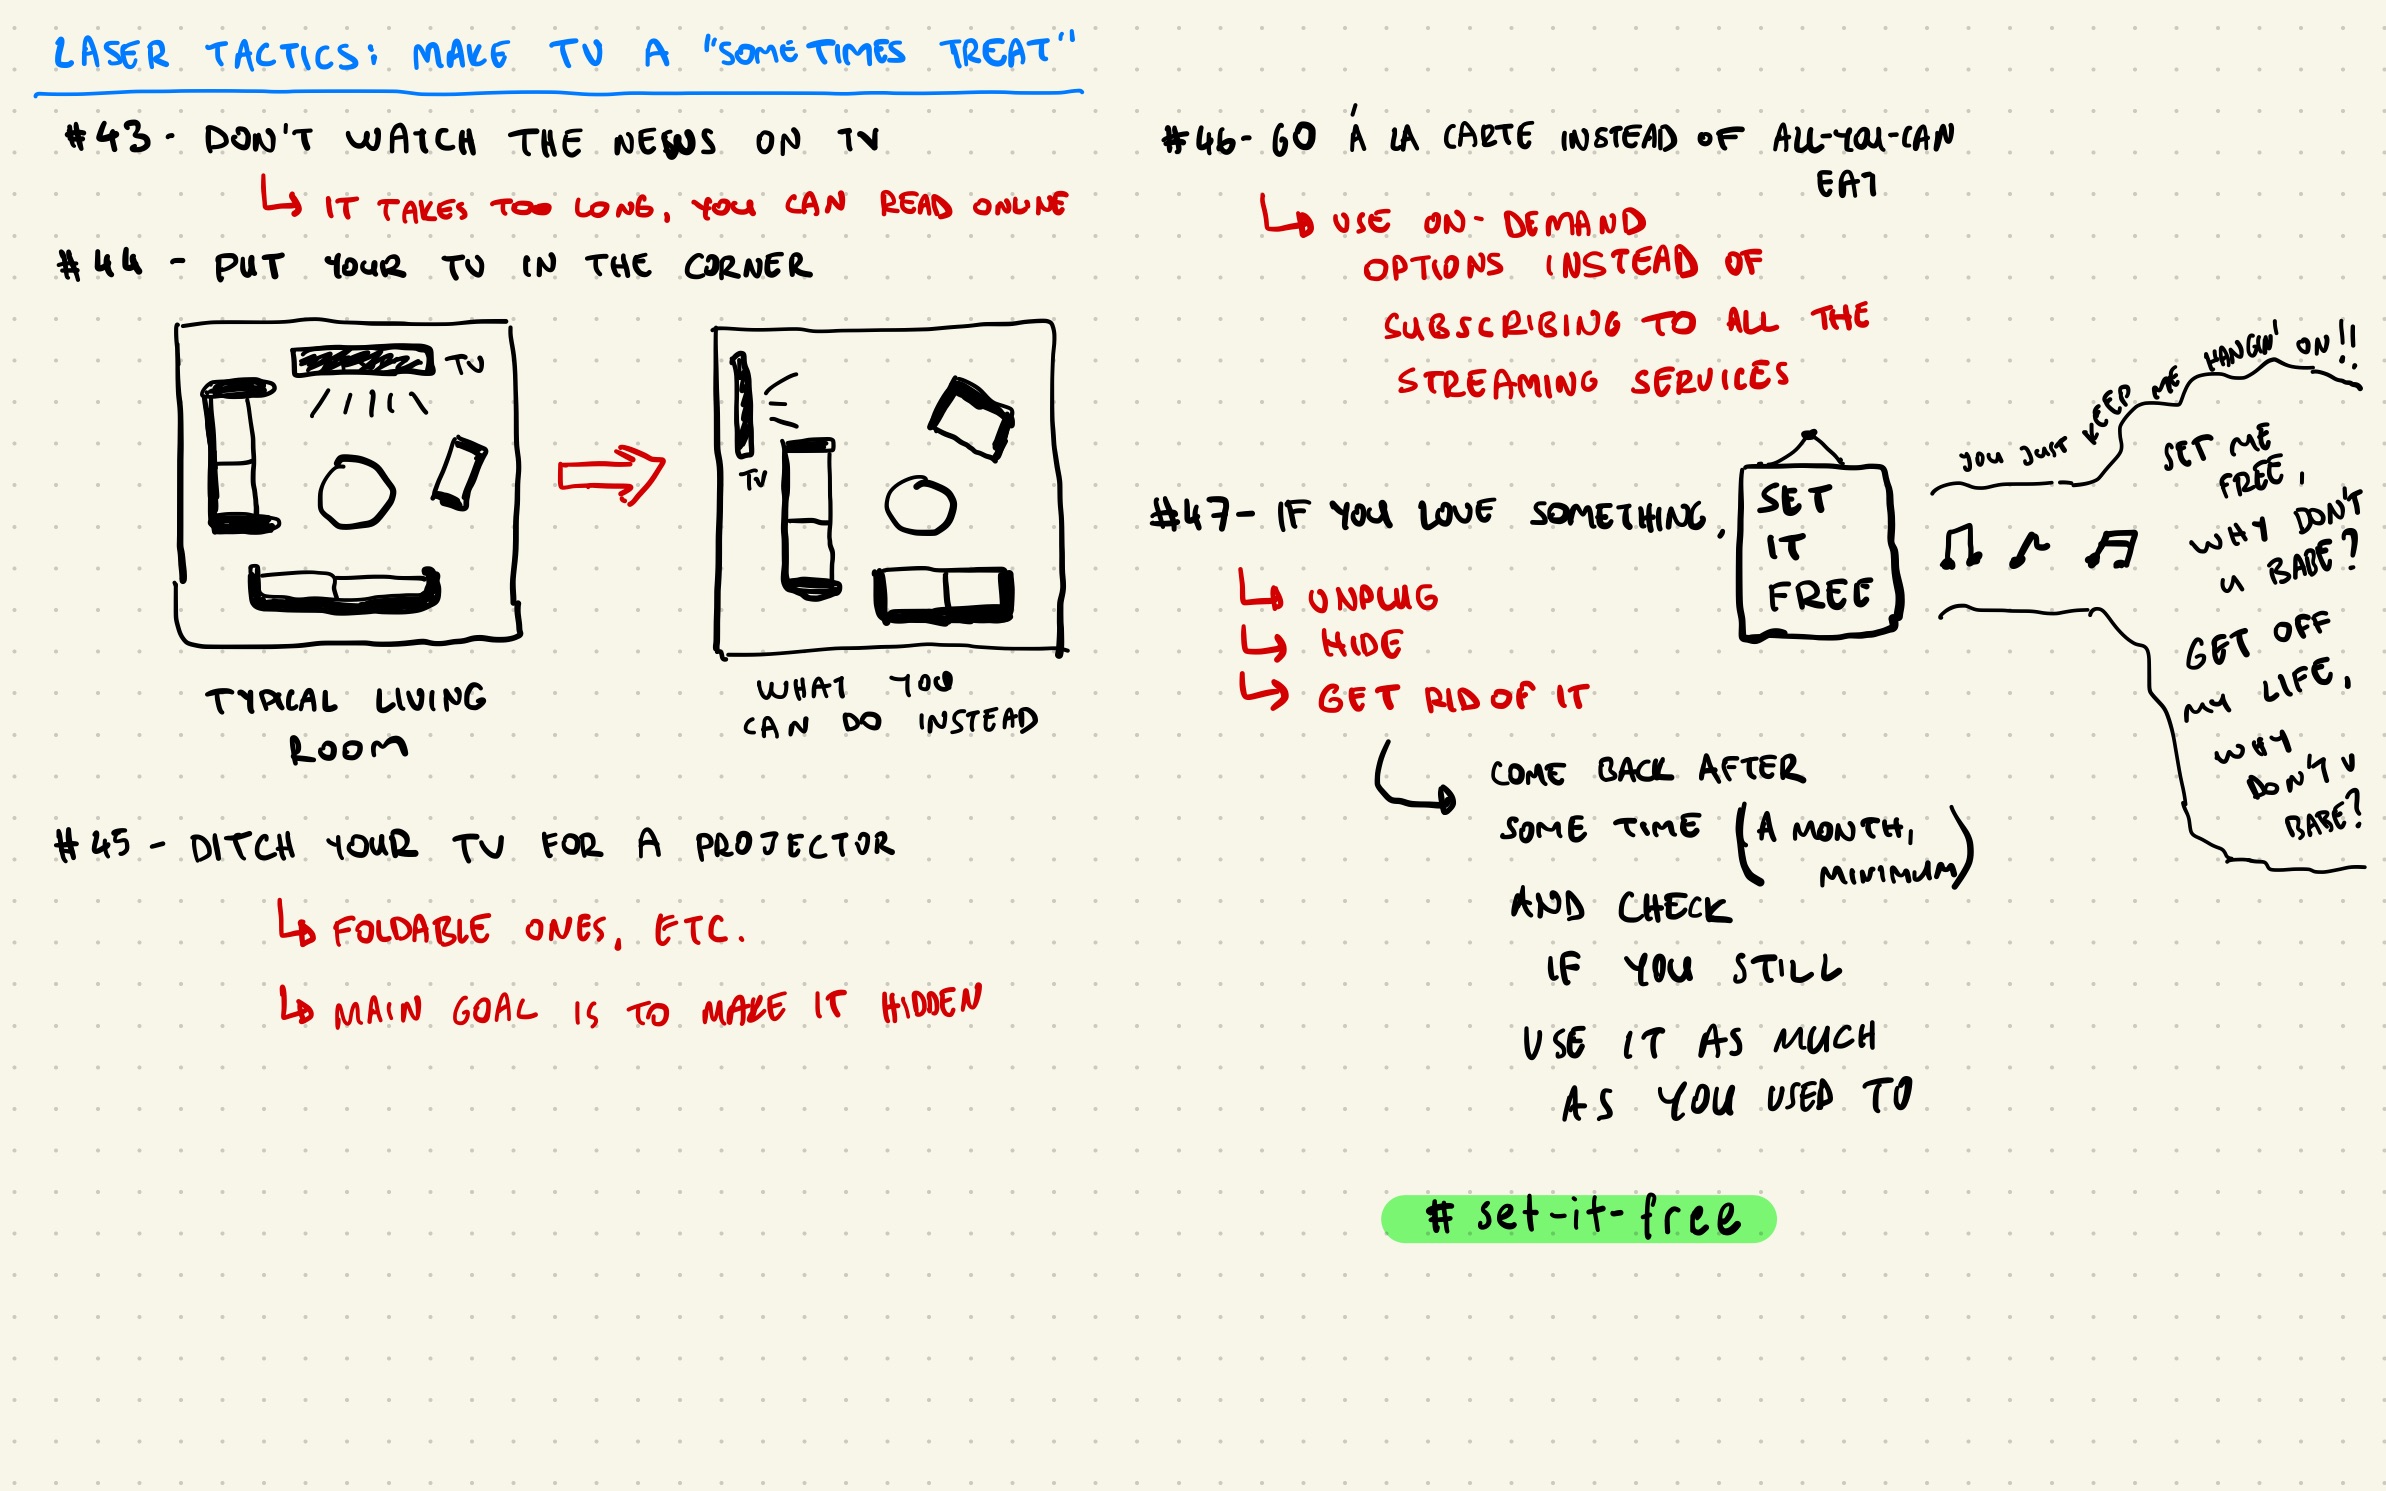 LASER TACTICS: MAKE TV A "SOMETIMES TREAT"
#43 - DON'T WATCH THE NEWS ON TV
IT TAKES TOO LONG, YOU CAN READ ONLINE
#44 - PUT YOUR TV IN THE CORNER
TV
TYPICAL LIVING
ROOM
TV
WHAT YOU
CAN DO INSTEAD
#45 - DITCH YOUR TV FOR A PROJECTOR
FOLDABLE ONES, ETC.
MAIN GOAL IS TO MAKE IT HIDDEN
#46 - GO Á LA CARTE INSTEAD OF ALL-YOU-CAN
EAT
USE ON-DEMAND
OPTIONS INSTEAD OF
SUBSCRIBING TO ALL THE
STREAMING SERVICES
#47 - IF YOU LOVE SOMETHING,
SET
IT
FREE
UNPLUG
HIDE
GET RID OF IT
COME BACK AFTER
SOME TIME (A MONTH,
MINIMUM)
AND CHECK
IF YOU STILL
USE IT AS MUCH
AS YOU USED TO
# set-it-free
YOU JUST KEEP ME HANGIN' ON!!
SET ME
FREE,
WHY DON'T
U BABE?
GET OFF
MY LIFE,
WHY
DON'T U
BABE?